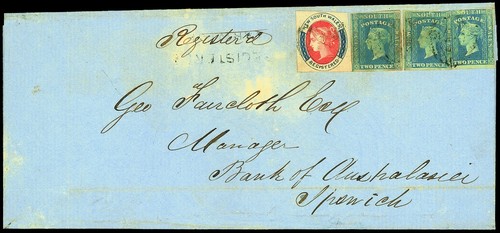 Registered
NEW SOUTH WALES
REGISTERED
SOUTH
POSTAGE
TWO PENCE
SOUTH
POSTAGE
TWO PENCE
SOUTH
POSTAGE
TWO PENCE
Geo Faircloth Esq
Manager
Bank of Australasia
Ipswich